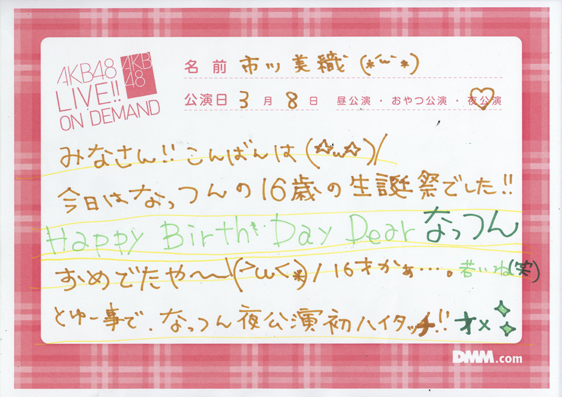 AKB48
LIVE!!
ON DEMAND
AKB
48
名 前 市川美織 (*´ω`*)
公演日 3 月 8 日 昼公演・おやつ公演・夜公演
みなさん!!こんばんは(☆ω☆)/
今日はなっつんの16歳の生誕祭でした!!
Happy Birth Day Dear なっつん
おめでたや〜〜\(>ω<*)/ 16才かぁ…。若いね(笑)
とゆー事で、なっつん夜公演初ハイタッチ!! オ×
DMM.com